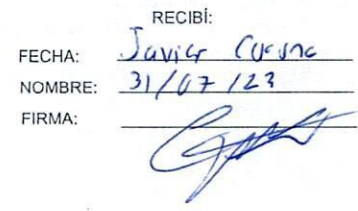 RECIBÍ:
FECHA: Javier
NOMBRE: 31/07/23
FIRMA: